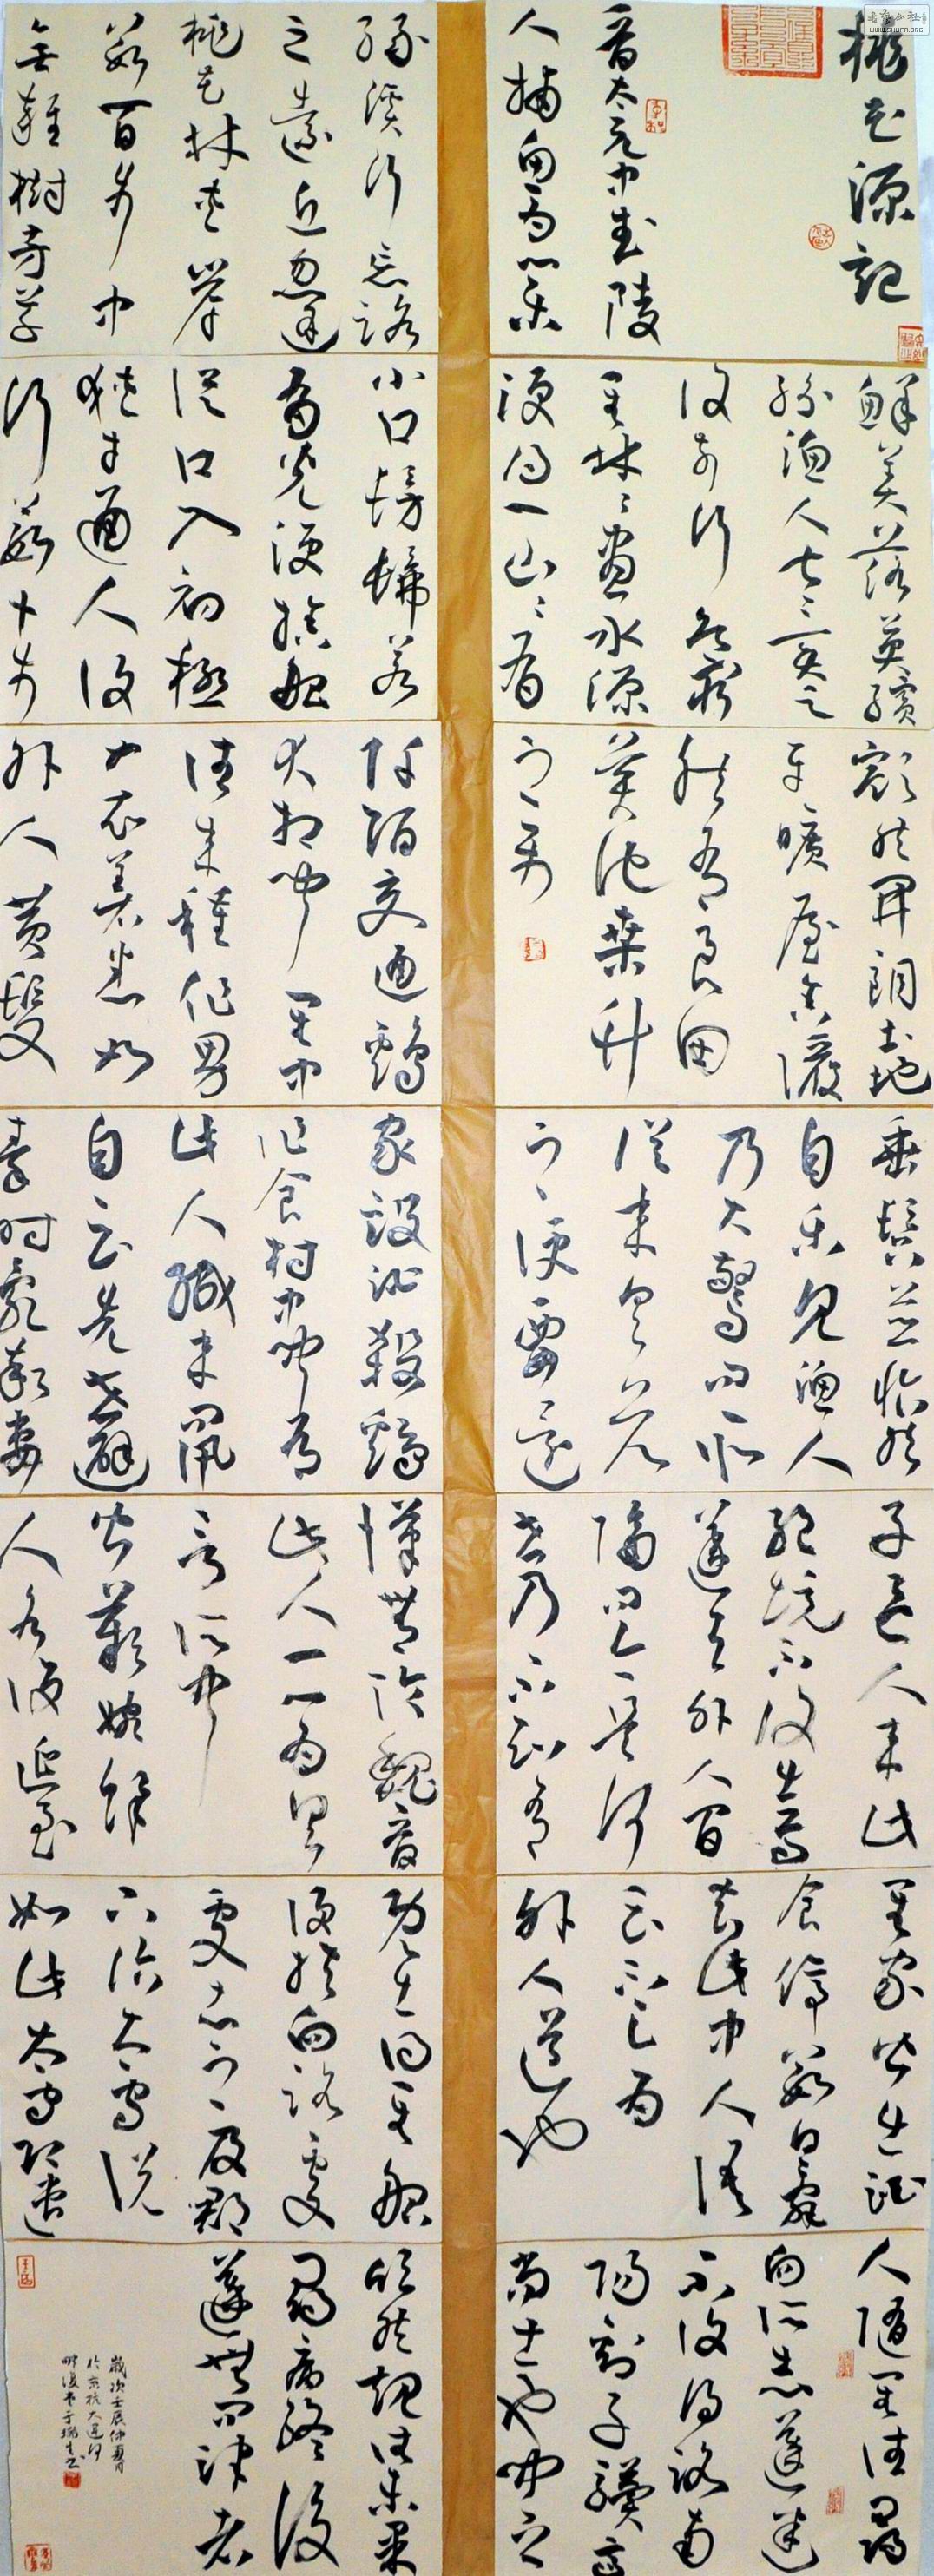 桃花源記
晉太元中武陵
人捕魚為業
緣溪行忘路
之遠近忽逢
桃花林夾岸
數百步中
無雜樹芳草
鮮美落英繽
紛漁人甚異之
復前行欲窮
其林〻盡水源
便得一山〻有
小口髣髴若
有光便捨船
從口入初極
狹才通人復
行數十步
豁然開朗土地
平曠屋舍儼
然有良田
美池桑竹
之屬
阡陌交通雞
犬相聞其中
往來種作男
女衣著悉如
外人黃髮
垂髫並怡然
自樂見漁人
乃大驚問所
從來具答
之便要還
家設酒殺雞
作食村中聞有
此人咸來問訊
自云先世避
秦時亂率妻
子邑人來此
絕境不復出焉
遂與外人間
隔問今是何
世乃不知有
漢無論魏晉
此人一一為具
言所聞
皆歎惋餘
人各復延至
其家皆出酒
食停數日辭
去此中人語
云不足為
外人道也
既出得其船
便扶向路處
處志之及郡
下詣太守說
如此太守即遣
人隨其往尋
向所志遂迷
不復得路南
陽劉子驥高
尚士也聞之
欣然規往未果
尋病終後
遂無問津者
歲次壬辰仲夏月
於京杭大運河